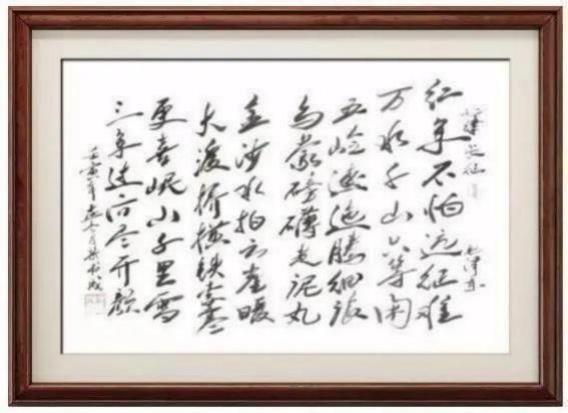 长征
毛泽东
红军不怕远征难
万水千山只等闲
五岭逶迤腾细浪
乌蒙磅礴走泥丸
金沙水拍云崖暖
大渡桥横铁索寒
更喜岷山千里雪
三军过后尽开颜
壬寅年